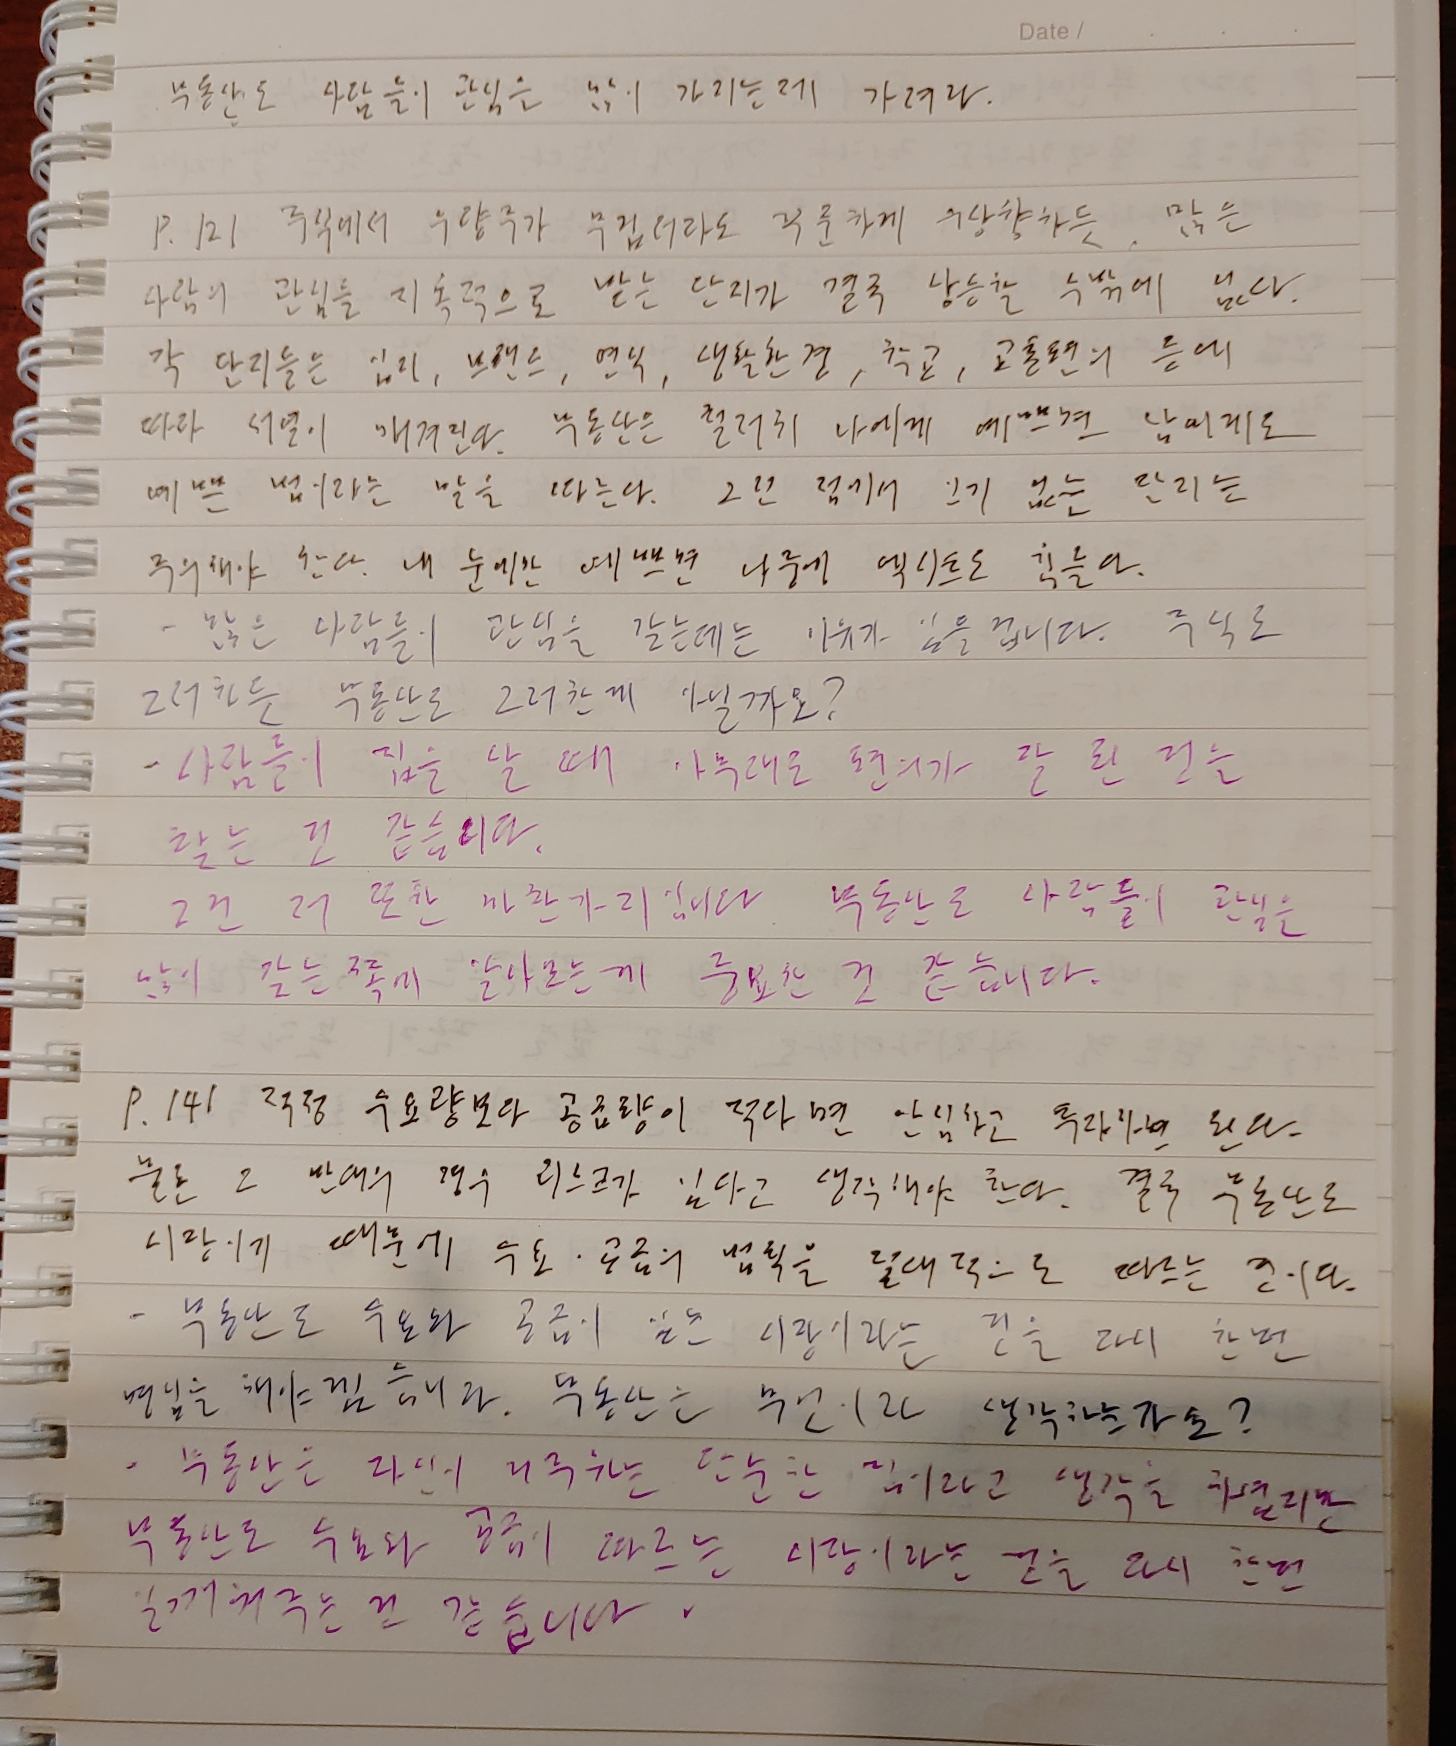 Date /
부동산도 사람들이 관심을 많이 가지는데 가려라.
P. 121 주식에서 우량주가 무겁더라도 꾸준하게 우상향하듯, 많은
사람의 관심을 지속적으로 받는 단지가 결국 상승할 수밖에 없다.
각 단지들은 입지, 브랜드, 연식, 생활환경, 학교, 교통편의 등에
따라 서열이 매겨진다. 부동산은 철저히 나에게 예쁘면 남에게도
예쁜 법이라는 말을 따른다. 그런 점에서 인기 없는 단지는
주의해야 한다. 내 눈에만 예쁘면 나중에 엑시트도 힘들다.
- 많은 사람들이 관심을 갖는데는 이유가 있을겁니다. 주식도
그러하듯 부동산도 그러한게 아닐까요?
- 사람들이 집을 살 때 아무래도 편의가 잘 된 것을
찾는 것 같습니다.
그건 저 또한 마찬가지입니다. 부동산도 사람들이 관심을
많이 갖는쪽에 알아보는게 중요한 것 같습니다.
P. 141 적정 수요량보다 공급량이 적다면 안심하고 투자하면 된다.
물론 그 반대의 경우 리스크가 있다고 생각해야 한다. 결국 부동산도
시장이기 때문에 수요·공급의 법칙을 절대적으로 따르는 것이다.
- 부동산도 수요와 공급이 있는 시장이라는 것을 다시 한번
명심을 해야겠습니다. 부동산은 무엇이라 생각하는가요?
- 부동산은 자신이 거주하는 단순한 집이라고 생각을 하였지만
부동산도 수요와 공급이 따르는 시장이라는 것을 다시 한번
일깨워주는 것 같습니다.